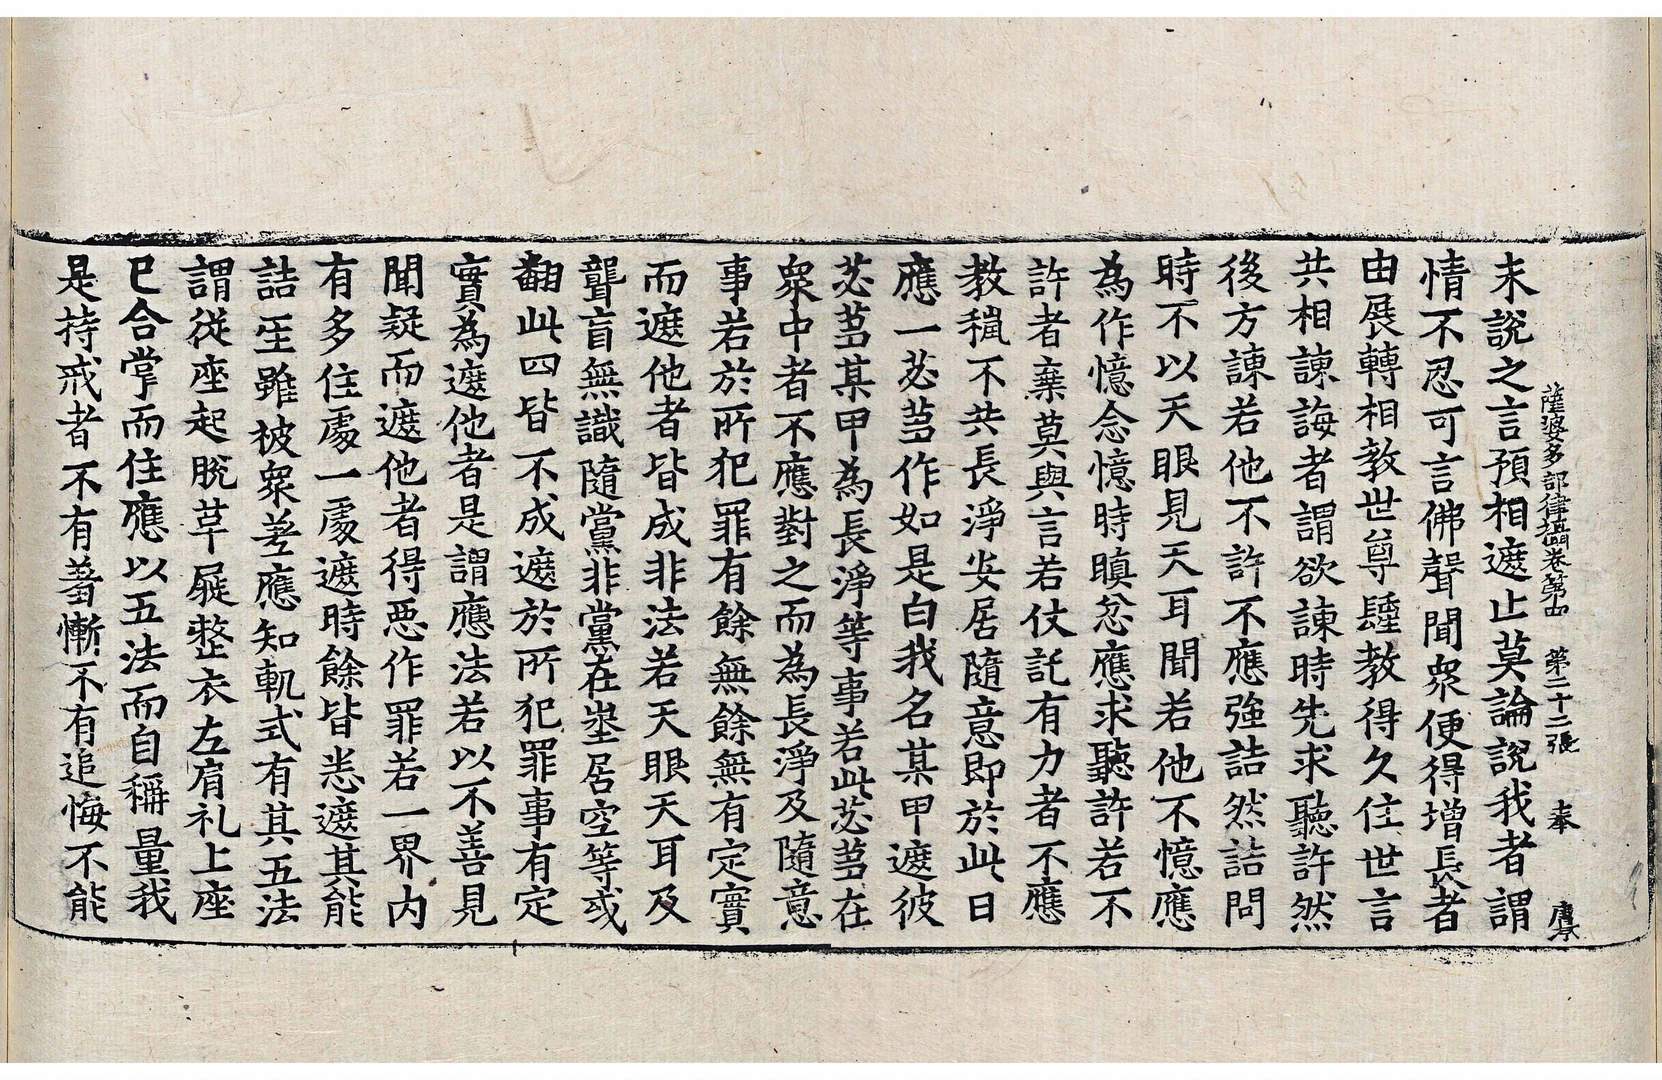 薩婆多部律攝卷第四　第二十二張　奉　麿
未說之言預相遮止莫論說我者謂
情不忍可言佛聲聞衆便得增長者
由展轉相教世尊䡱教得久住世言
共相諫誨者謂欲諫時先求聽許然
後方諫若他不許不應強詰然詰問
時不以天眼見天耳聞若他不憶應
為作憶念憶時瞋忿應求聽許若不
許者棄莫與言若仗託有力者不應
教稱不共長淨安居隨意即於此日
應一苾芻作如是白我名某甲遮彼
苾芻某甲為長淨等事若此苾芻在
衆中者不應對之而為長淨及隨意
事若於所犯罪有餘無餘無有定實
而遮他者皆成非法若天眼天耳及
聾盲無識隨黨非黨在㘴居空等或
翻此四皆不成遮於所犯罪事有定
實為遮他者是謂應法若以不善見
聞疑而遮他者得惡作罪若一界內
有多住處一處遮時餘皆悉遮其能
詰𤯔雖被衆差應知軌式有其五法
謂從座起脫草屣整衣左肩礼上座
已合掌而住應以五法而自稱量我
是持戒者不有羞慚不有追悔不能